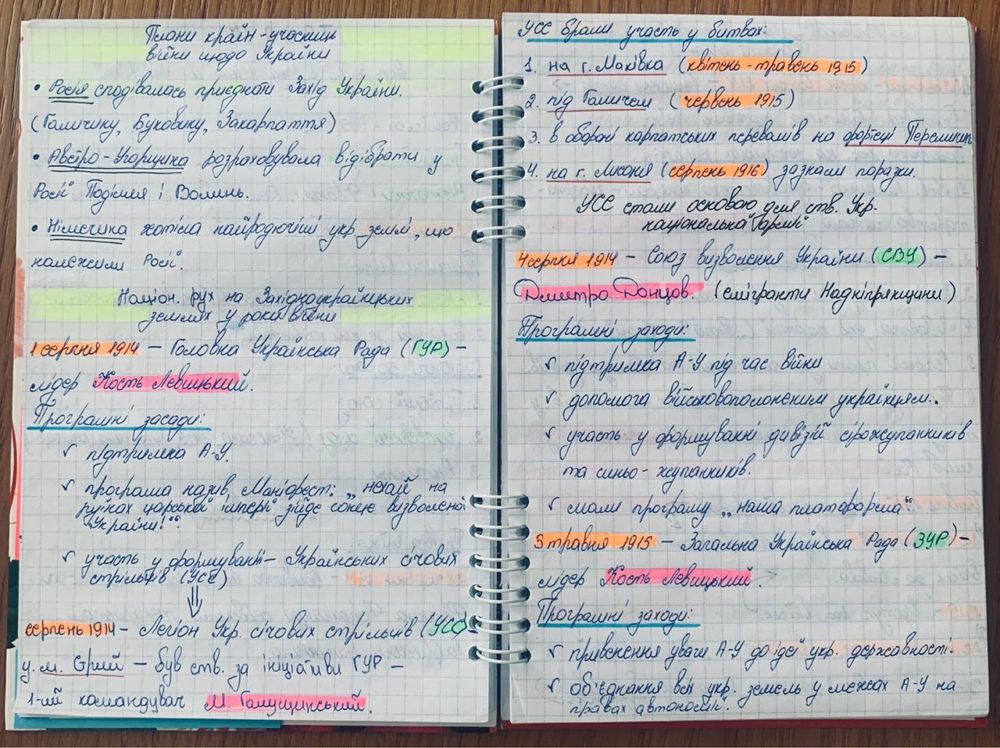 Плани країн-учасниць
війни щодо України
• Росія сподівалась приєднати Захід України.
(Галичину, Буковину, Закарпаття)
• Австро-Угорщина розраховувала відібрати у
Росії Поділля і Волинь.
• Німеччина хотіла найродючіші укр землі, що
належали Росії.
Націон. рух на Західноукраїнських
землях у роки війни
1 серпня 1914 – Головна Українська Рада (ГУР) –
лідер Кость Левицький.
Програмні засади:
✓ підтримка А-У.
✓ програма назив. Маніфест: „нехай на
руїнах царської імперії зійде сонце визволеної
України!".
✓ участь у формуванні Українських січових
стрільців (УСС)
серпень 1914 – Легіон Укр. січових стрільців (УСС)
у м. Стрий – був ств. за ініціативи ГУР –
1-ий командувач М. Галущинський.
УСС брали участь у битвах:
1. на г. Маківка (квітень-травень 1915)
2. під Галичем (червень 1915)
3. в обороні карпатських перевалів на фортеці Перемишль
4. на г. Лисоня (серпень 1916) зазнали поразки.
УСС стали основою для ств. Укр.
національної армії
4 серпня 1914 – Союз визволення України (СВУ) –
Дмитро Донцов. (емігранти Наддніпрянщини)
Програмні заходи:
✓ підтримка А-У під час війни
✓ допомога військовополоненим українцям.
✓ участь у формуванні дивізій сірожупанників
та синьо-жупанників.
✓ мали програму „наша платформа".
5 травня 1915 – Загальна Українська Рада (ЗУР) –
лідер Кость Левицький.
Програмні заходи:
✓ привернення уваги А-У до ідеї укр. державності.
✓ об'єднання всіх укр. земель у межах А-У на
правах автономії.